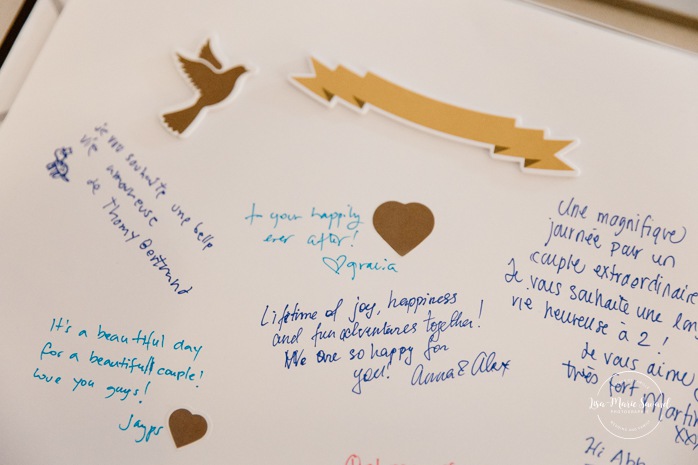 Je vous souhaite une belle
vie amoureuse
de Thomy Bertrand
+ your happily
ever after!
♡gracia
Une magnifique
journée pour un
couple extraordinaire
Je vous souhaite une
vie heureuse à 2!
Je vous aime
très fort Martin
XX
Lifetime of joy, happiness
and fun adventures together!
We are so happy for
you! Anna & Alex
It's a beautiful day
for a beautiful couple!
Love you guys!
Jayps
Hi Abb
Lisa-Marie Savard
PHOTOGRAPHY